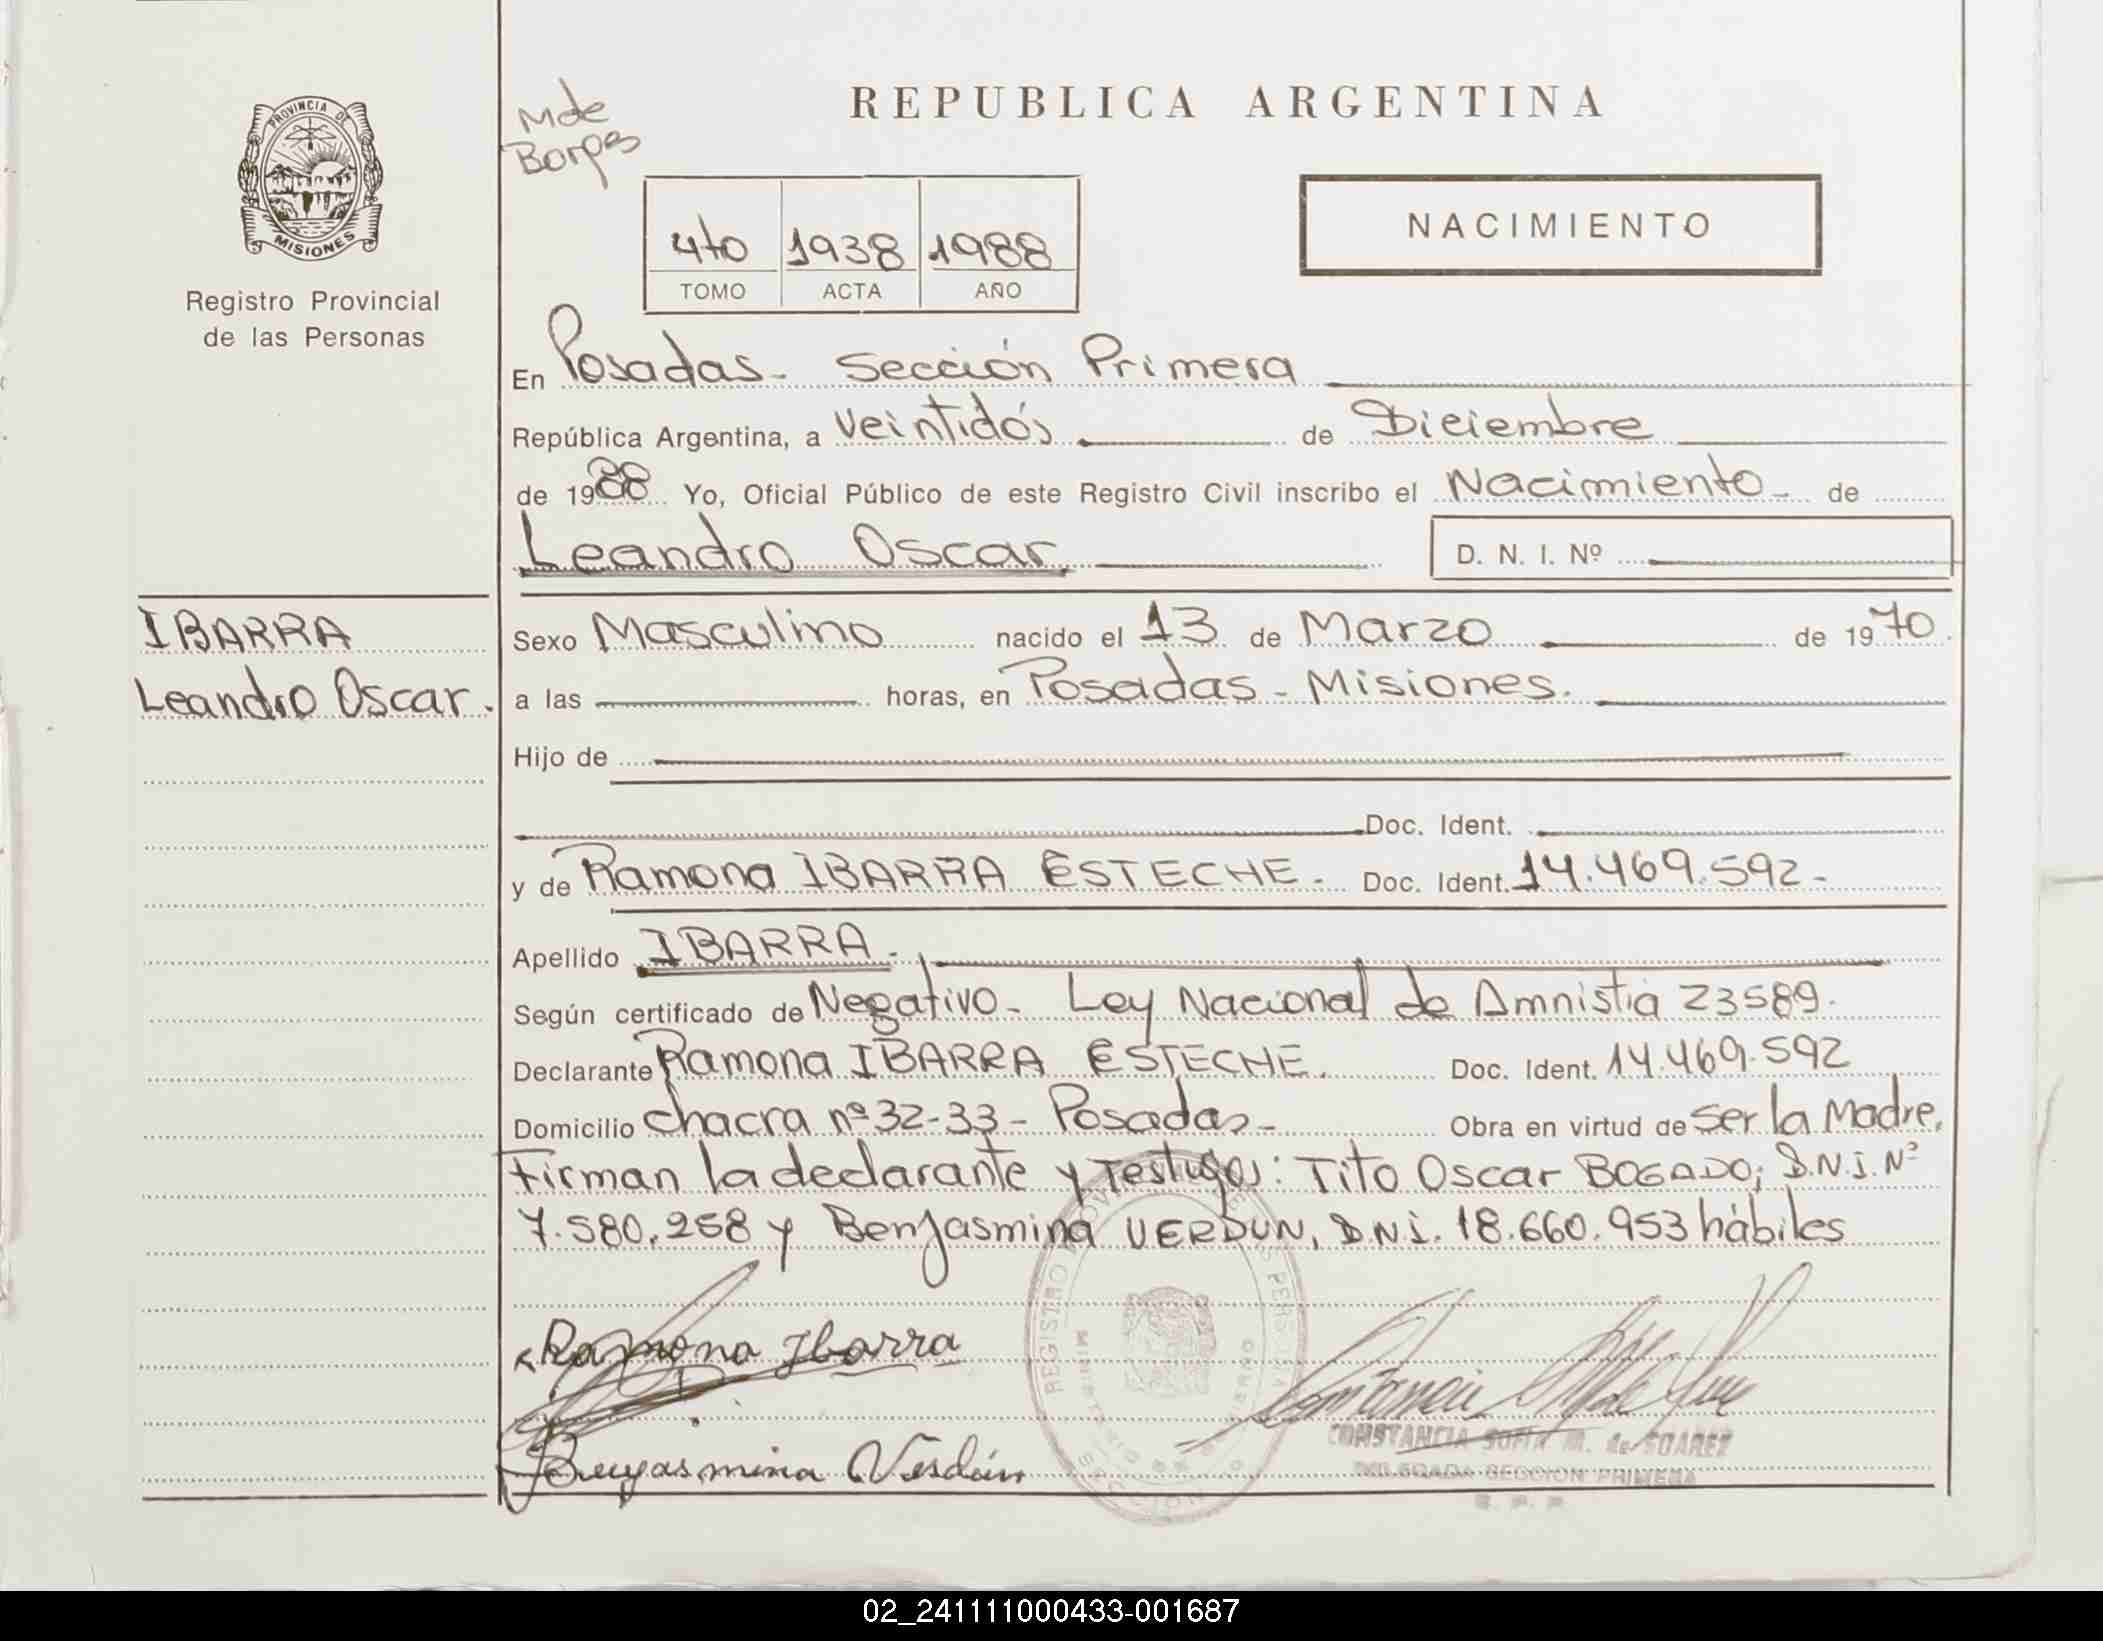 PROVINCIA DE
MISIONES
Registro Provincial
de las Personas
IBARRA
Leandro Oscar.
M de
Borges
REPUBLICA ARGENTINA
4to 1938 1988
TOMO ACTA AÑO
NACIMIENTO
En Posadas - Sección Primera
República Argentina, a Veintidós de Diciembre
de 1988 Yo, Oficial Público de este Registro Civil inscribo el Nacimiento - de
Leandro Oscar
D. N. I. Nº
Sexo Masculino nacido el 13 de Marzo de 1970.
a las horas, en Posadas - Misiones.
Hijo de
Doc. Ident.
y de Ramona IBARRA ESTECHE. Doc. Ident. 14.469.592-
Apellido IBARRA.
Según certificado de Negativo - Ley Nacional de Amnistia 23589.
Declarante Ramona IBARRA ESTECHE. Doc. Ident. 14.469.592
Domicilio chacra nº 32-33 - Posadas - Obra en virtud de Ser la Madre.
Firman la declarante y Testigos: Tito Oscar BOGADO; D.N.I. Nº
7.580.258 y Benjasmina VERDUN, D.N.I. 18.660.953 hábiles
Ramona Ibarra
Benjasmina Verdún
REGISTRO PROV DE LAS PERSONAS
MINISTERIO DE GOBIERNO
SECCION
CONSTANCIA SOFIA M. de SUAREZ
DELEGADA SECCION PRIMERA
R. P. P.
02_241111000433-001687